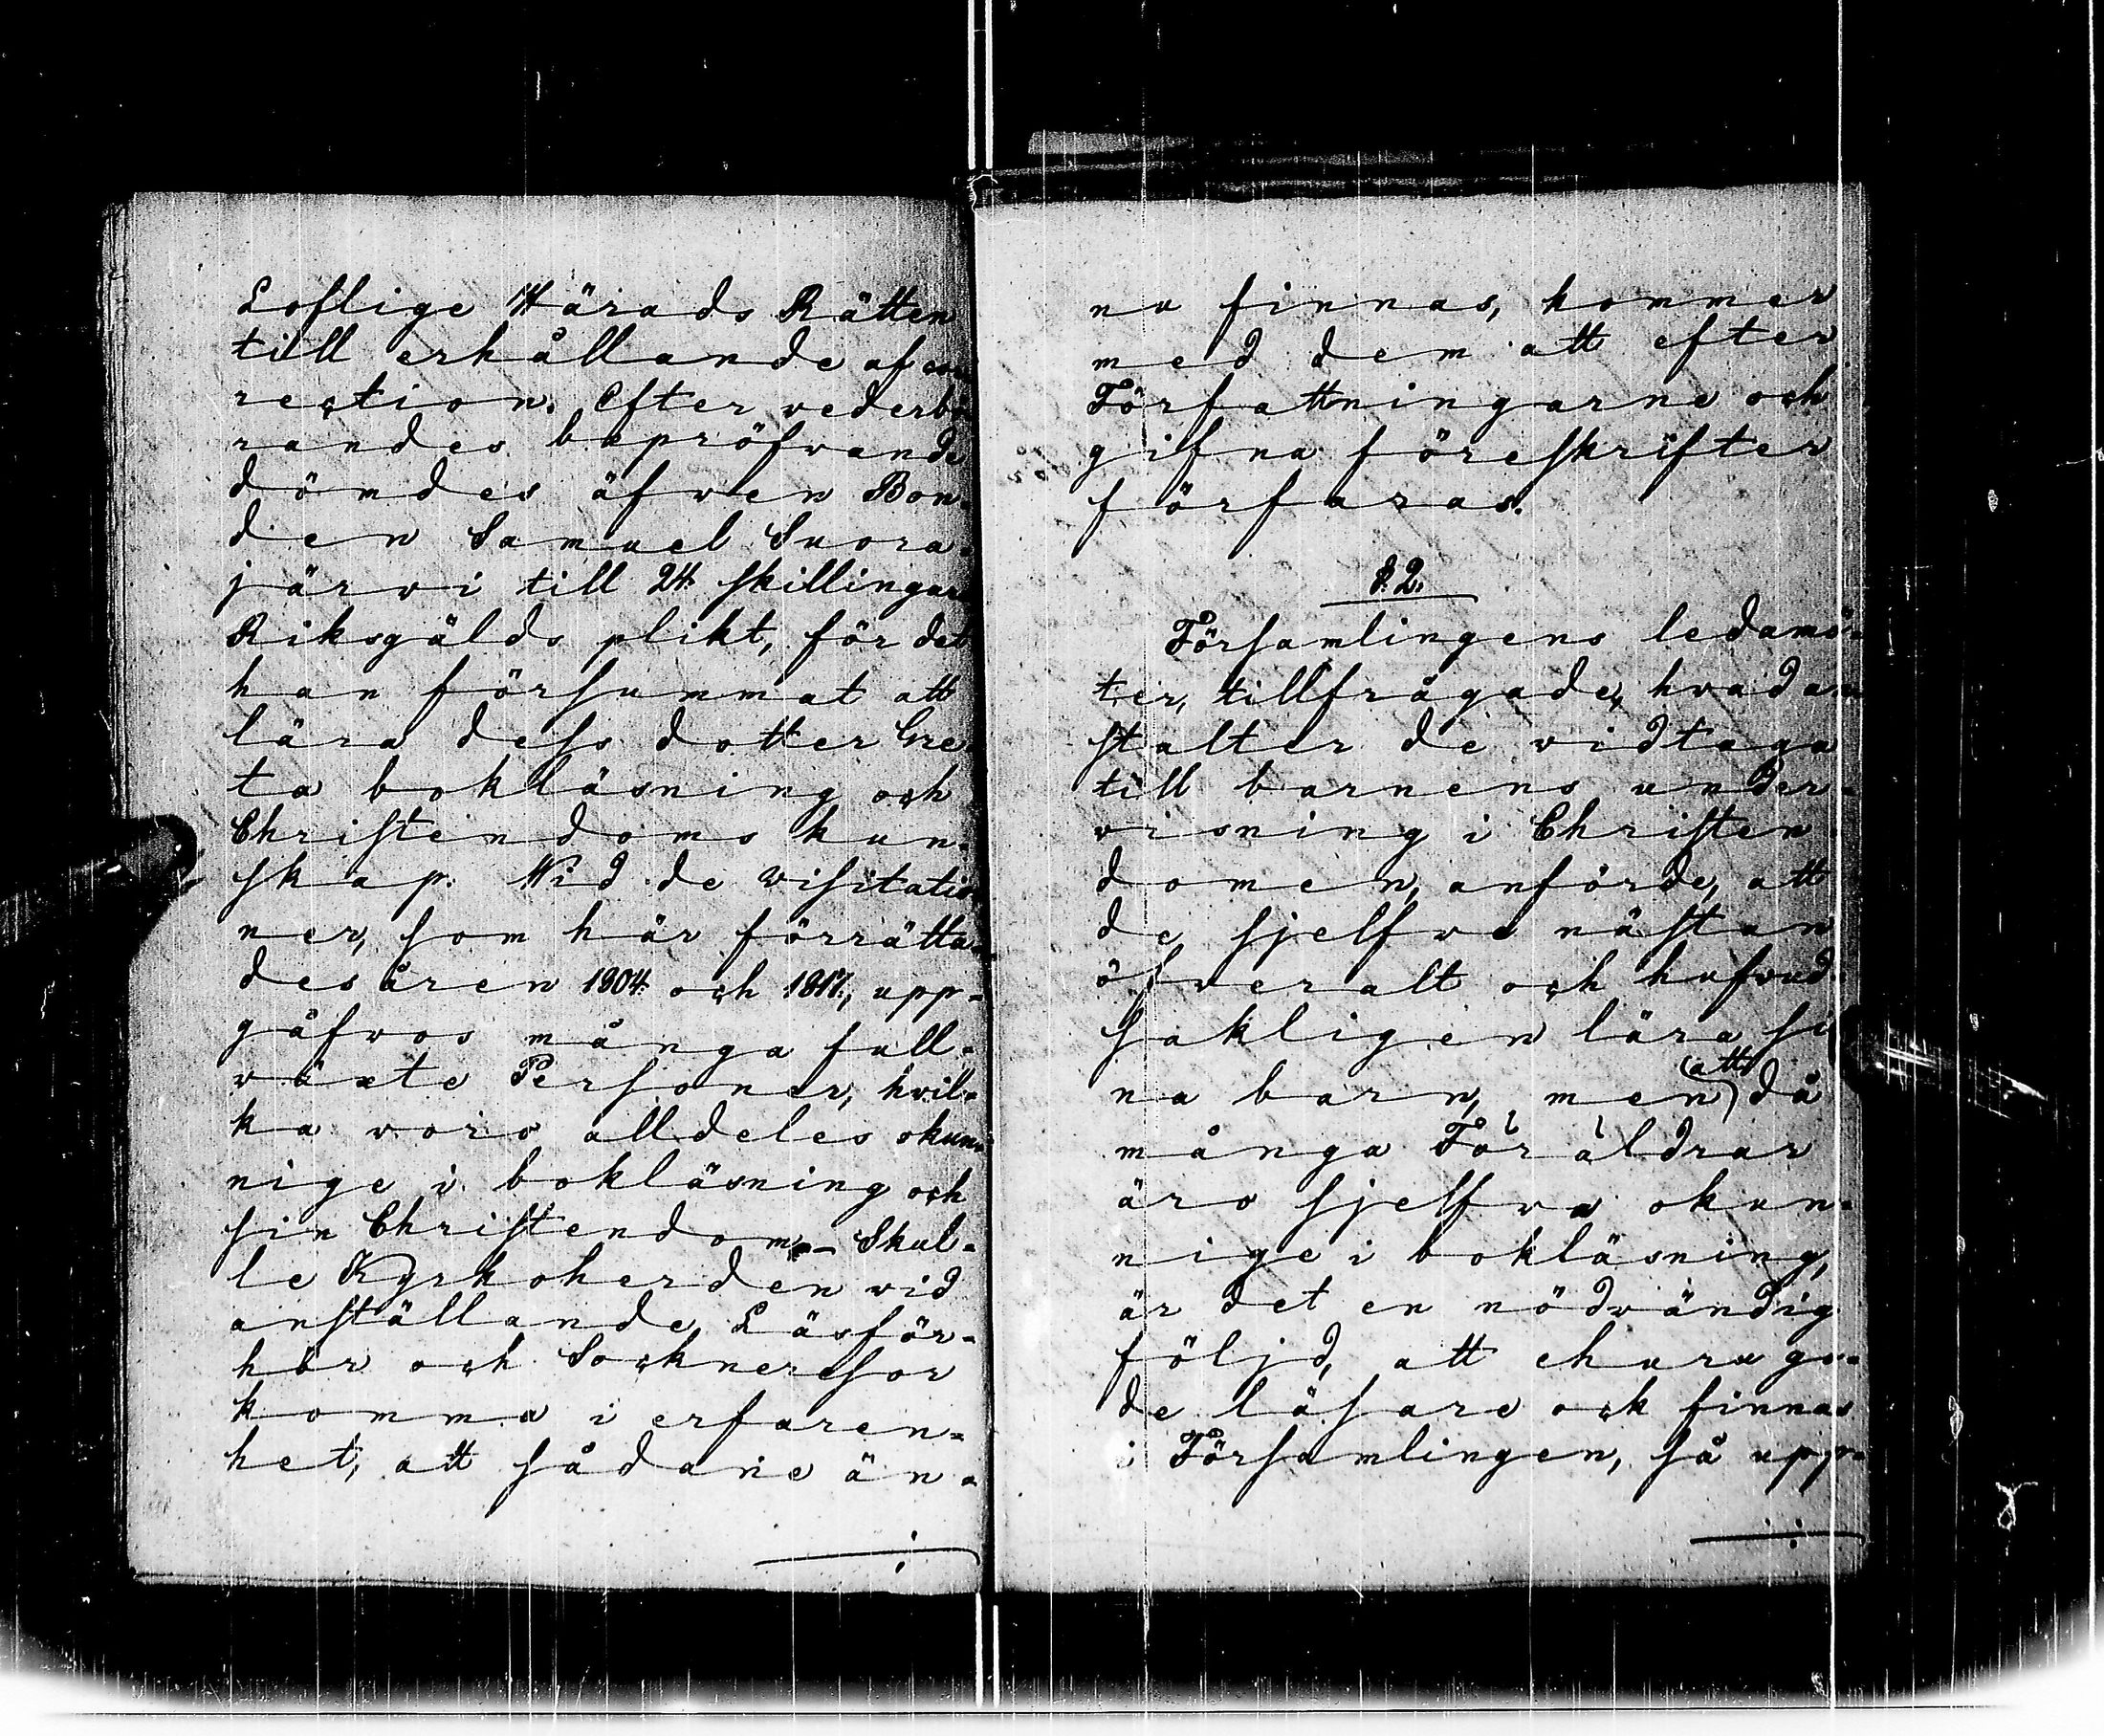 Loflige Härads Rätten
till erhållande af cor
rection. Efter wederbö
randes bepröfwande
dömdes äfwen Bon-
den Samuel Suora-
järwi till 24 skillingar
Riksgälds plikt, för det
han försummat att
lära dess dotter Gre
ta bokläsning och
Christendoms kun-
skap. Wid de Wisitatio
ner, som här förrätta-
des åren 1804 och 1817, upp-
gåfwos många full-
wäxte Personer, hwil-
ka woro alldeles okun-
nige i bokläsning och
sin Christendom. - Skul-
le Kyrkoherden wid
anställande Läsför-
hör och Socknersor
komma i erfaren-
het, att sådane än-
nu finnas, kommer
med dem att efter
Författningarne och
gifna föreskrifter
förfaras.
§. 2.
Församlingens ledamö-
ter, tillfrågade, hwad an
stalter de widtaga
till barnens under-
wisning i Christen
domen, anförde, att
de sjelfwe nästan
öfweralt och hufwud-
sakligen lära si
na barn, men att då
många Föräldrar
äro sjelfwa okun-
nige i bokläsning,
är det en nödwändig
följd, att ehuru go-
de läsare ock finnas
i Församlingen, så upp-